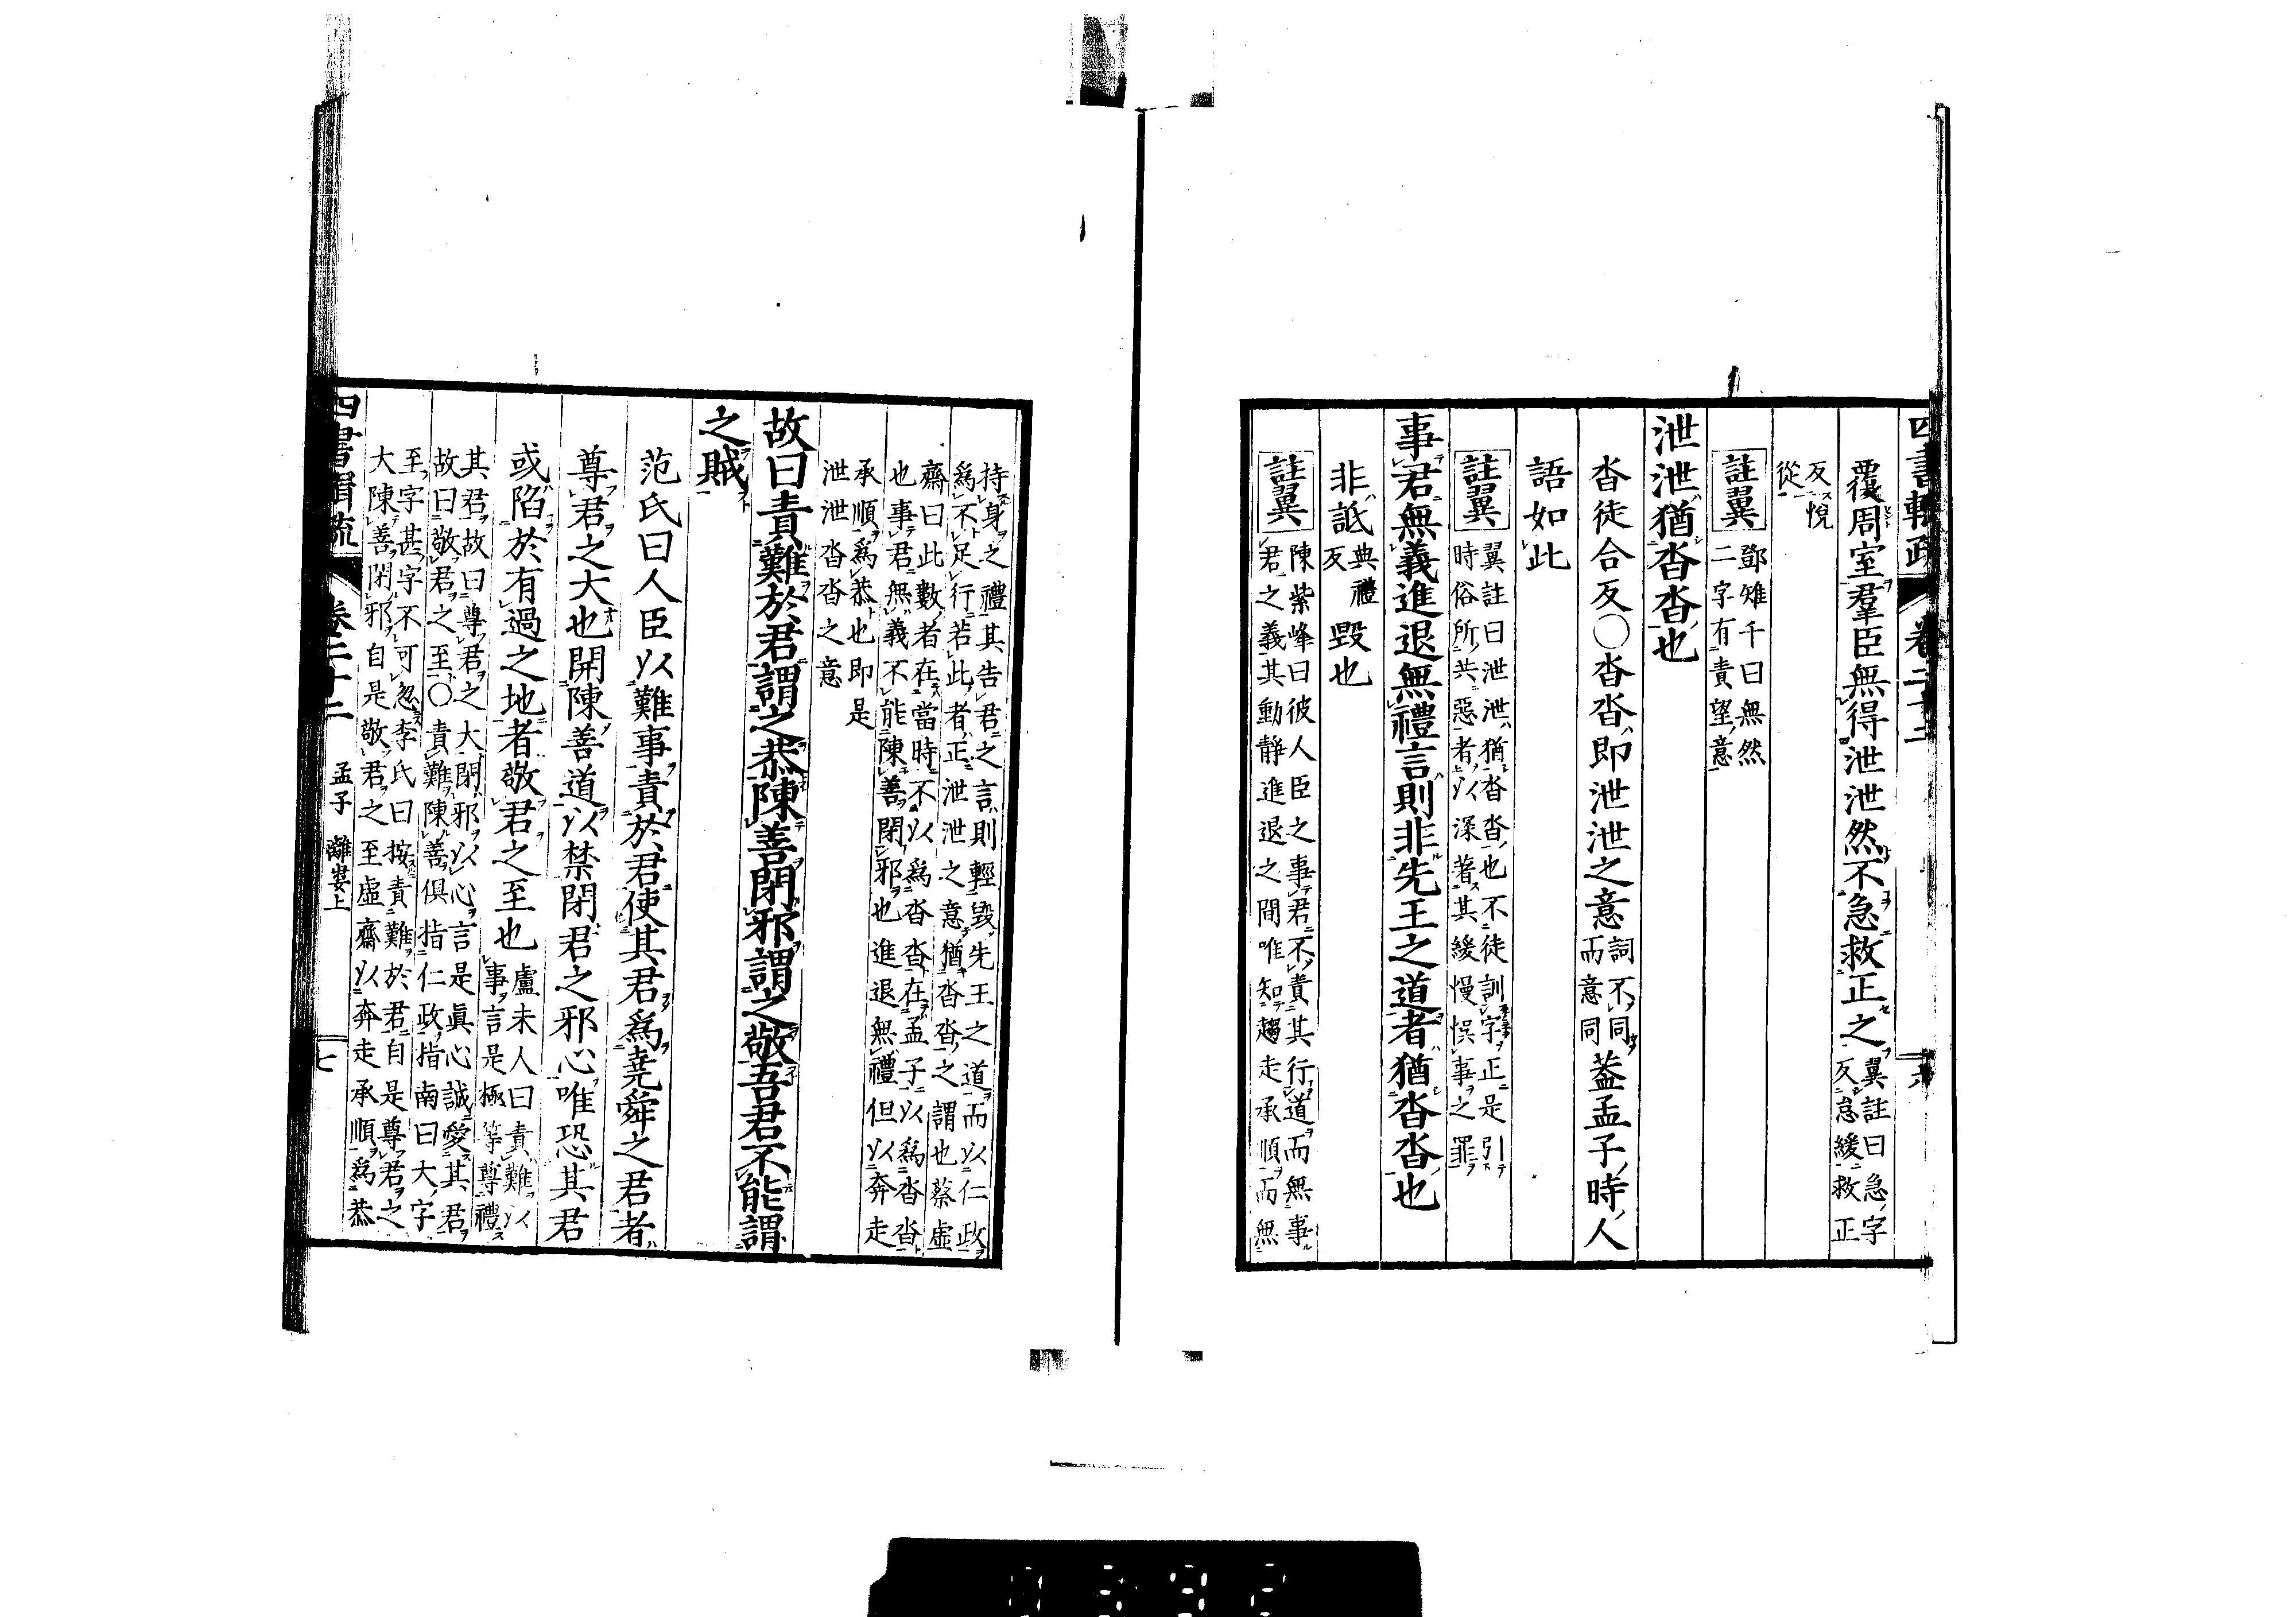 覆周室羣臣無得泄泄然不急救正之翼註曰急字
反怠緩救正
反
悅
從
註翼鄧雉千曰無然
二字有責望意
泄泄猶沓沓也
沓徒合反〇沓沓即泄泄之意詞不同
而意同蓋孟子時人
語如此
註翼翼註曰泄泄猶沓沓也不徒訓字正是引
時俗所共惡者以深著其緩慢悞事之罪
事君無義進退無禮言則非先王之道者猶沓沓也
非詆典禮
反毀也
註翼陳紫峰曰彼人臣之事君不責其行道而無事
君之義其動靜進退之間唯知趨走承順而無
持身之禮其告君之言則輕毀先王之道而以仁政
爲不足行若此者正泄泄之意猶沓沓之謂也蔡虛
齋曰此數者在當時不以爲沓沓在孟子以爲沓沓
也事君無義不能陳善閉邪也進退無禮但以奔走
承順爲恭也即是
泄泄沓沓之意
故曰責難於君謂之恭陳善閉邪謂之敬吾君不能謂
之賊
范氏曰人臣以難事責於君使其君爲堯舜之君者
尊君之大也開陳善道以禁閉君之邪心唯恐其君
或陷於有過之地者敬君之至也盧未人曰責難以
事言是極等尊禮
其君故曰尊君之大閉邪以心言是眞心誠愛其君
故曰敬君之至〇責難陳善俱指仁政指南曰大字
至字甚字不可忽李氏曰按責難於君自是尊君之
大陳善閉邪自是敬君之至虛齋以奔走承順爲恭
卷二十二 孟子 離婁上 七